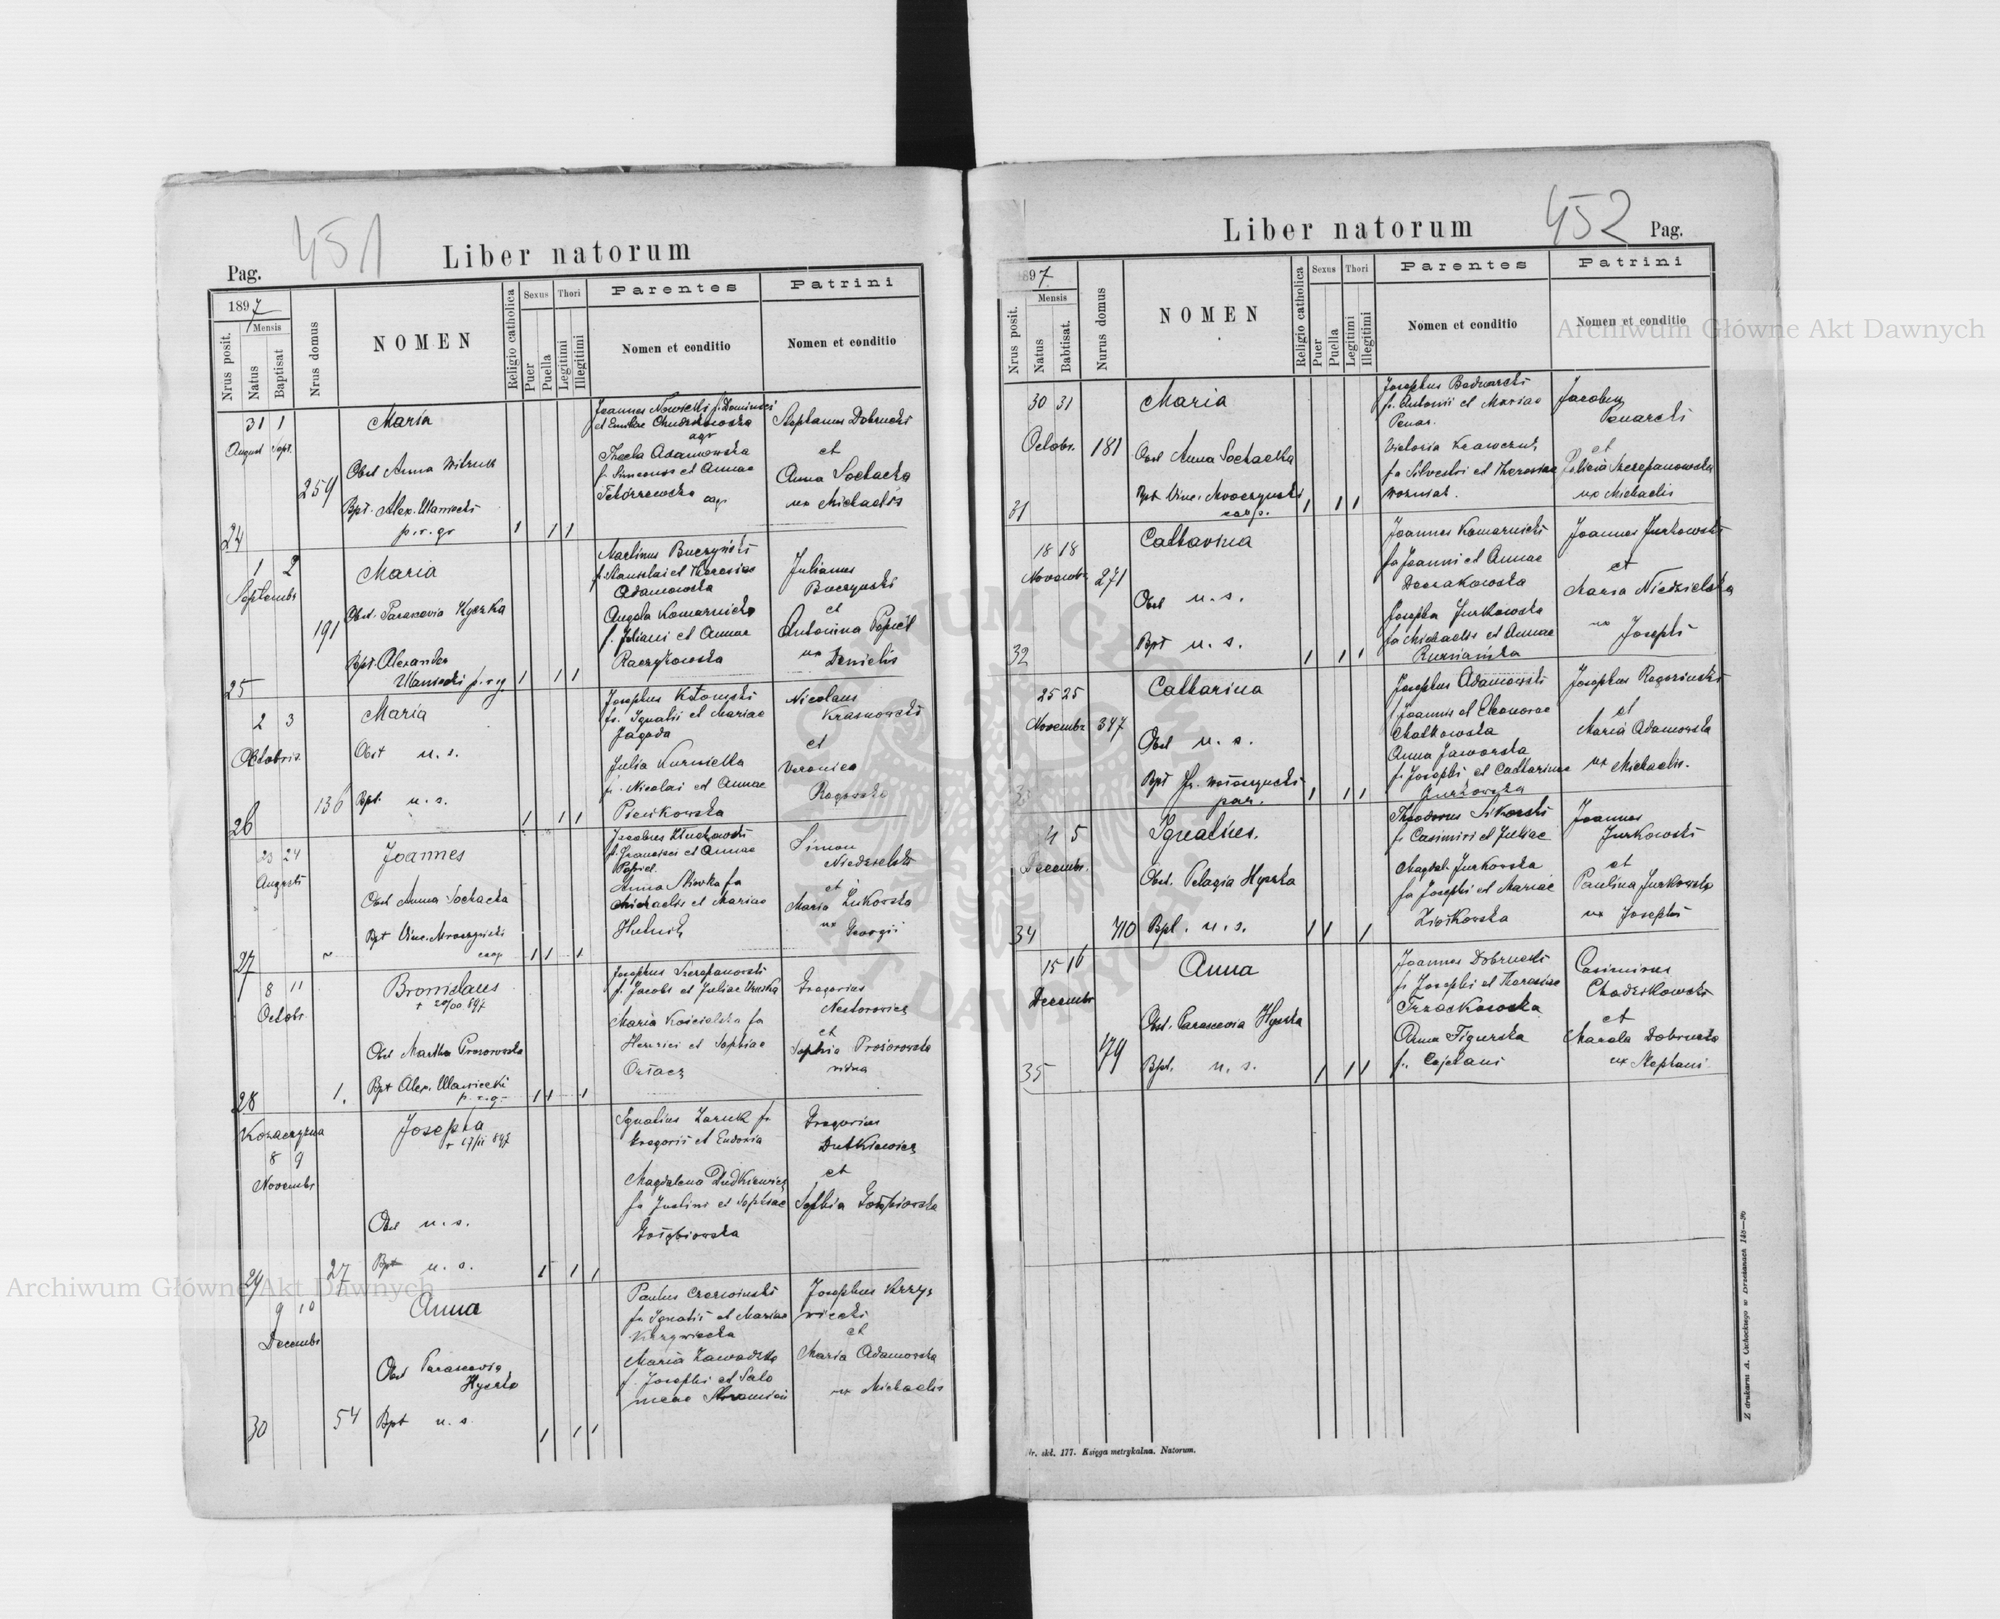 451
Pag.
Liber natorum
1897
Nrus posit.
Mensis
Natus
Baptisat
Nrus domus
NOMEN
Religio catholica
Sexus
Puer
Puella
Thori
Legitimi
Illegitimi
Parentes
Nomen et conditio
Patrini
Nomen et conditio
24
31 1
August Sept.
259
Maria
Obst Anna Witruk
Bpt. Alex. Ulaniecki
p. r. gr
1 1 1
Joannes Nowicki f. Dominici
et Emiliae
agr
Thecla Adamowska
f. Simeonis et Annae
agr
Stephanus Dobrucki
et
Anna Sochacka
ux Michaelis
25
1 2
Septembr
191
Maria
Obst. Parascevia Hyczka
Bpt Alexander
Ulaniecki p. r. g
1 1 1
Martinus Buczyński
f. Stanislai et Theresiae
Adamowska
Angela Komarnicka
f. Juliani et Annae
Raczykowska
Julianus
Buczynski
et
Antonina Popiel
ux Danielis
26
2 3
Octobris
136
Maria
Obst u. s.
Bpt. u. s.
1 1 1
Josephus Kotowski
fs. Ignatii et Mariae
Jagoda
Julia Kurnicka
f. Nicolai et Annae
Pienikowska
Nicolaus
Krasnowski
et
Veronica
Rogowska
27
23 24
Augusti
Joannes
Obst Anna Sochacka
Bpt Vinc. Mroczynski
coop
1 1 1
f. Francisci et Annae
Popiel
Anna Sliwka fa
Michaelis et Mariae
Hutnik
Simon
Niedzielski
et
Maria Żukowska
ux Georgii
28
8 11
Octobr.
1.
Bronislaus
Obst Martha Prozorowska
Bpt Alex. Ulaniecki
p. r. g.
1 1 1
Josephus Szczepanowski
f. Jacobi et Juliae
Maria Kościelska fa
Henrici et Sophiae
Gregorius
Nestorowicz
et
Sophia Prozorowska
vidua
29
Kozaczyzna
8 9
Novembr
27
Josepha
+ 17/11 897
Obst u. s.
Bpt u. s.
1 1 1
Ignatius Zaruk fs
Gregorii et Eudoxia
Magdalena Dudkiewicz
fa Justini et Sophiae
Gołębiowska
Gregorius
Dutkiewicz
et
Sophia Gołębiowska
30
9 10
Decembr
54
Anna
Obst Parascevia
Hyczko
Bpt u. s.
1 1 1
Paulus Czerwinski
fs Ignatii et Mariae
Krzywiecka
Maria Zawadzka
f. Josephi et Salo
meae
Josephus Krzy-
wiecki
et
Maria Adamowska
ux Michaelis
452
Liber natorum
Pag.
1897
Nrus posit.
Mensis
Natus
Babtisat.
Nurus domus
NOMEN
Religio catholica
Sexus
Puer
Puella
Thori
Legitimi
Illegitimi
Parentes
Nomen et conditio
Patrini
Nomen et conditio
31
30 31
Octobr.
181
Maria
Obst Anna Sochacka
Bpt Vinc. Mroczynski
coop.
1 1 1
Josephus Bednarski
fs. Antonii et Mariae
Penar.
Victoria Krawczuk
fa Silvestri et Theresiae
Woźniak.
Jacobus
Penarski
et
Felicia Szczepanowska
ux Michaelis
32
18 18
Novembr
271
Catharina
Obst u. s.
Bpt u. s.
1 1 1
Joannes Komarnicki
fs Joanni et Annae
Daszakowska
Josepha Jurkowska
fa Michaelis et Annae
Rumiańska
Joannes Jurkowski
et
Maria Niedzielska
ux Josephi
25 25
Novembr
347
Catharina
Obst u. s.
Bpt Jr. Woloszynski
par.
1 1 1
Josephus Adamowski
f Joannis et Eleonorae
Chalkowska
Anna Jaworska
f. Josephi et Catharinae
Jurkowska
Josephus Rogozinski
et
Maria Adamowska
ux Michaelis.
34
4 5
Decembr.
410
Ignatius.
Obst. Pelagia Hyczka
Bpt. u. s.
1 1 1
Theodorus Sikorski
fs Casimiri et Juliae
Magdal. Jurkowska
fa Josephi et Mariae
Ziółkowska
Joannes
Jurkowski
et
Paulina Jurkowska
ux Josephi
35
15 16
Decembr
179
Anna
Obst. Parascevia Hyczka
Bpt. u. s.
1 1 1
Joannes Dobrucki
fs Josephi et Theresiae
Trzaskowska
Anna Figurska
f. Cajetani
Casimirus
Chodzikowski
et
Marcela Dobrucka
ux Stephani
Nr. skł. 177. Księga metrykalna. Natorum.
Z drukarni A. Cichockiego w Brzeżanach 145—96
Archiwum Główne Akt Dawnych
Archiwum Główne Akt Dawnych
ARCHIWUM GŁÓWNE AKT DAWNYCH